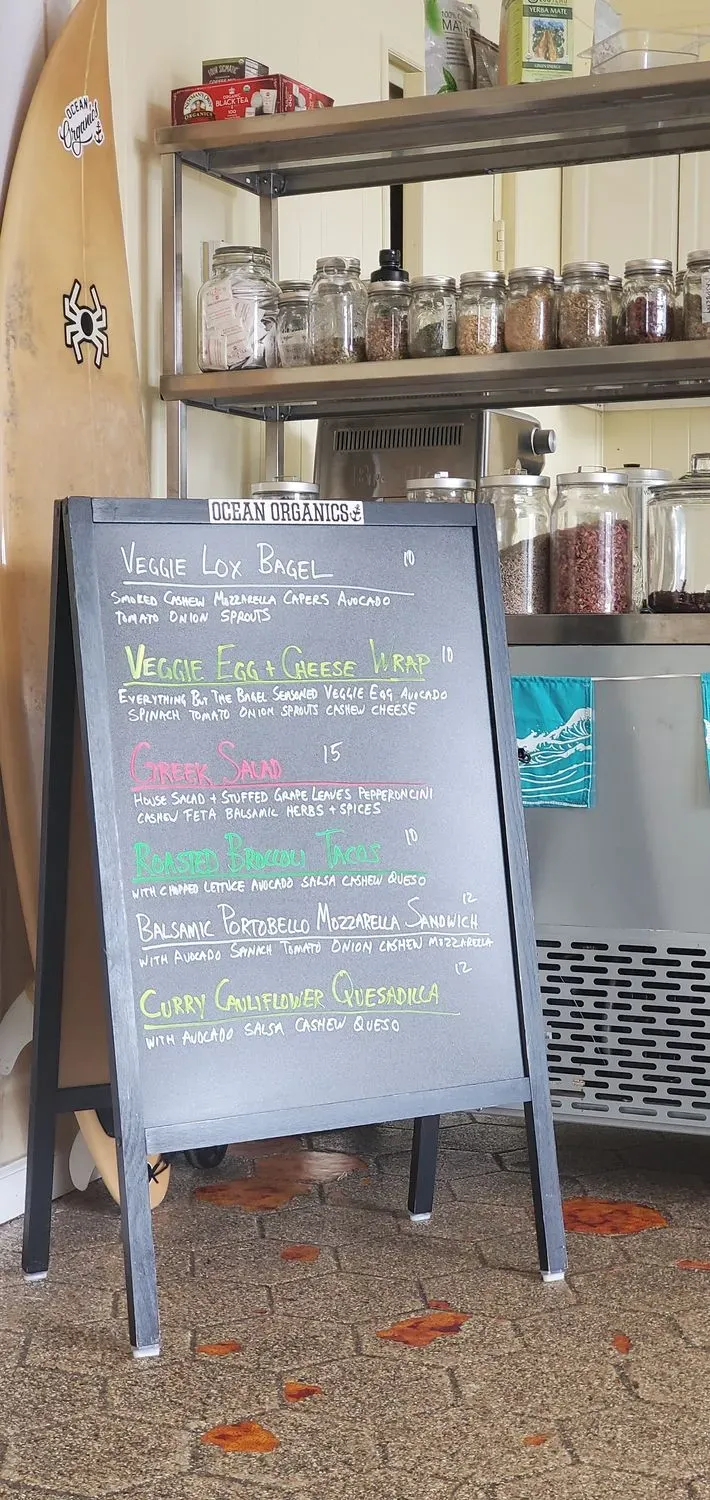 100% C
MA
YERBA MATE
FOUR SIGMATIC
ORGANIC
BLACK TEA
100
NEWMAN'S
ORGANICS
OCEAN
Organics
OCEAN ORGANICS
VEGGIE LOX BAGEL 10
SMOKED CASHEW MOZZARELLA CAPERS AVOCADO
TOMATO ONION SPROUTS
VEGGIE EGG + CHEESE WRAP 10
EVERYTHING BUT THE BAGEL SEASONED VEGGIE EGG AVOCADO
SPINACH TOMATO ONION SPROUTS CASHEW CHEESE
GREEK SALAD 15
HOUSE SALAD + STUFFED GRAPE LEAVES PEPPERONCINI
CASHEW FETA BALSAMIC HERBS + SPICES
ROASTED BROCCOLI TACOS 10
WITH CHOPPED LETTUCE AVOCADO SALSA CASHEW QUESO
BALSAMIC PORTOBELLO MOZZARELLA SANDWICH 12
WITH AVOCADO SPINACH TOMATO ONION CASHEW MOZZARELLA
CURRY CAULIFLOWER QUESADILLA 12
WITH AVOCADO SALSA CASHEW QUESO